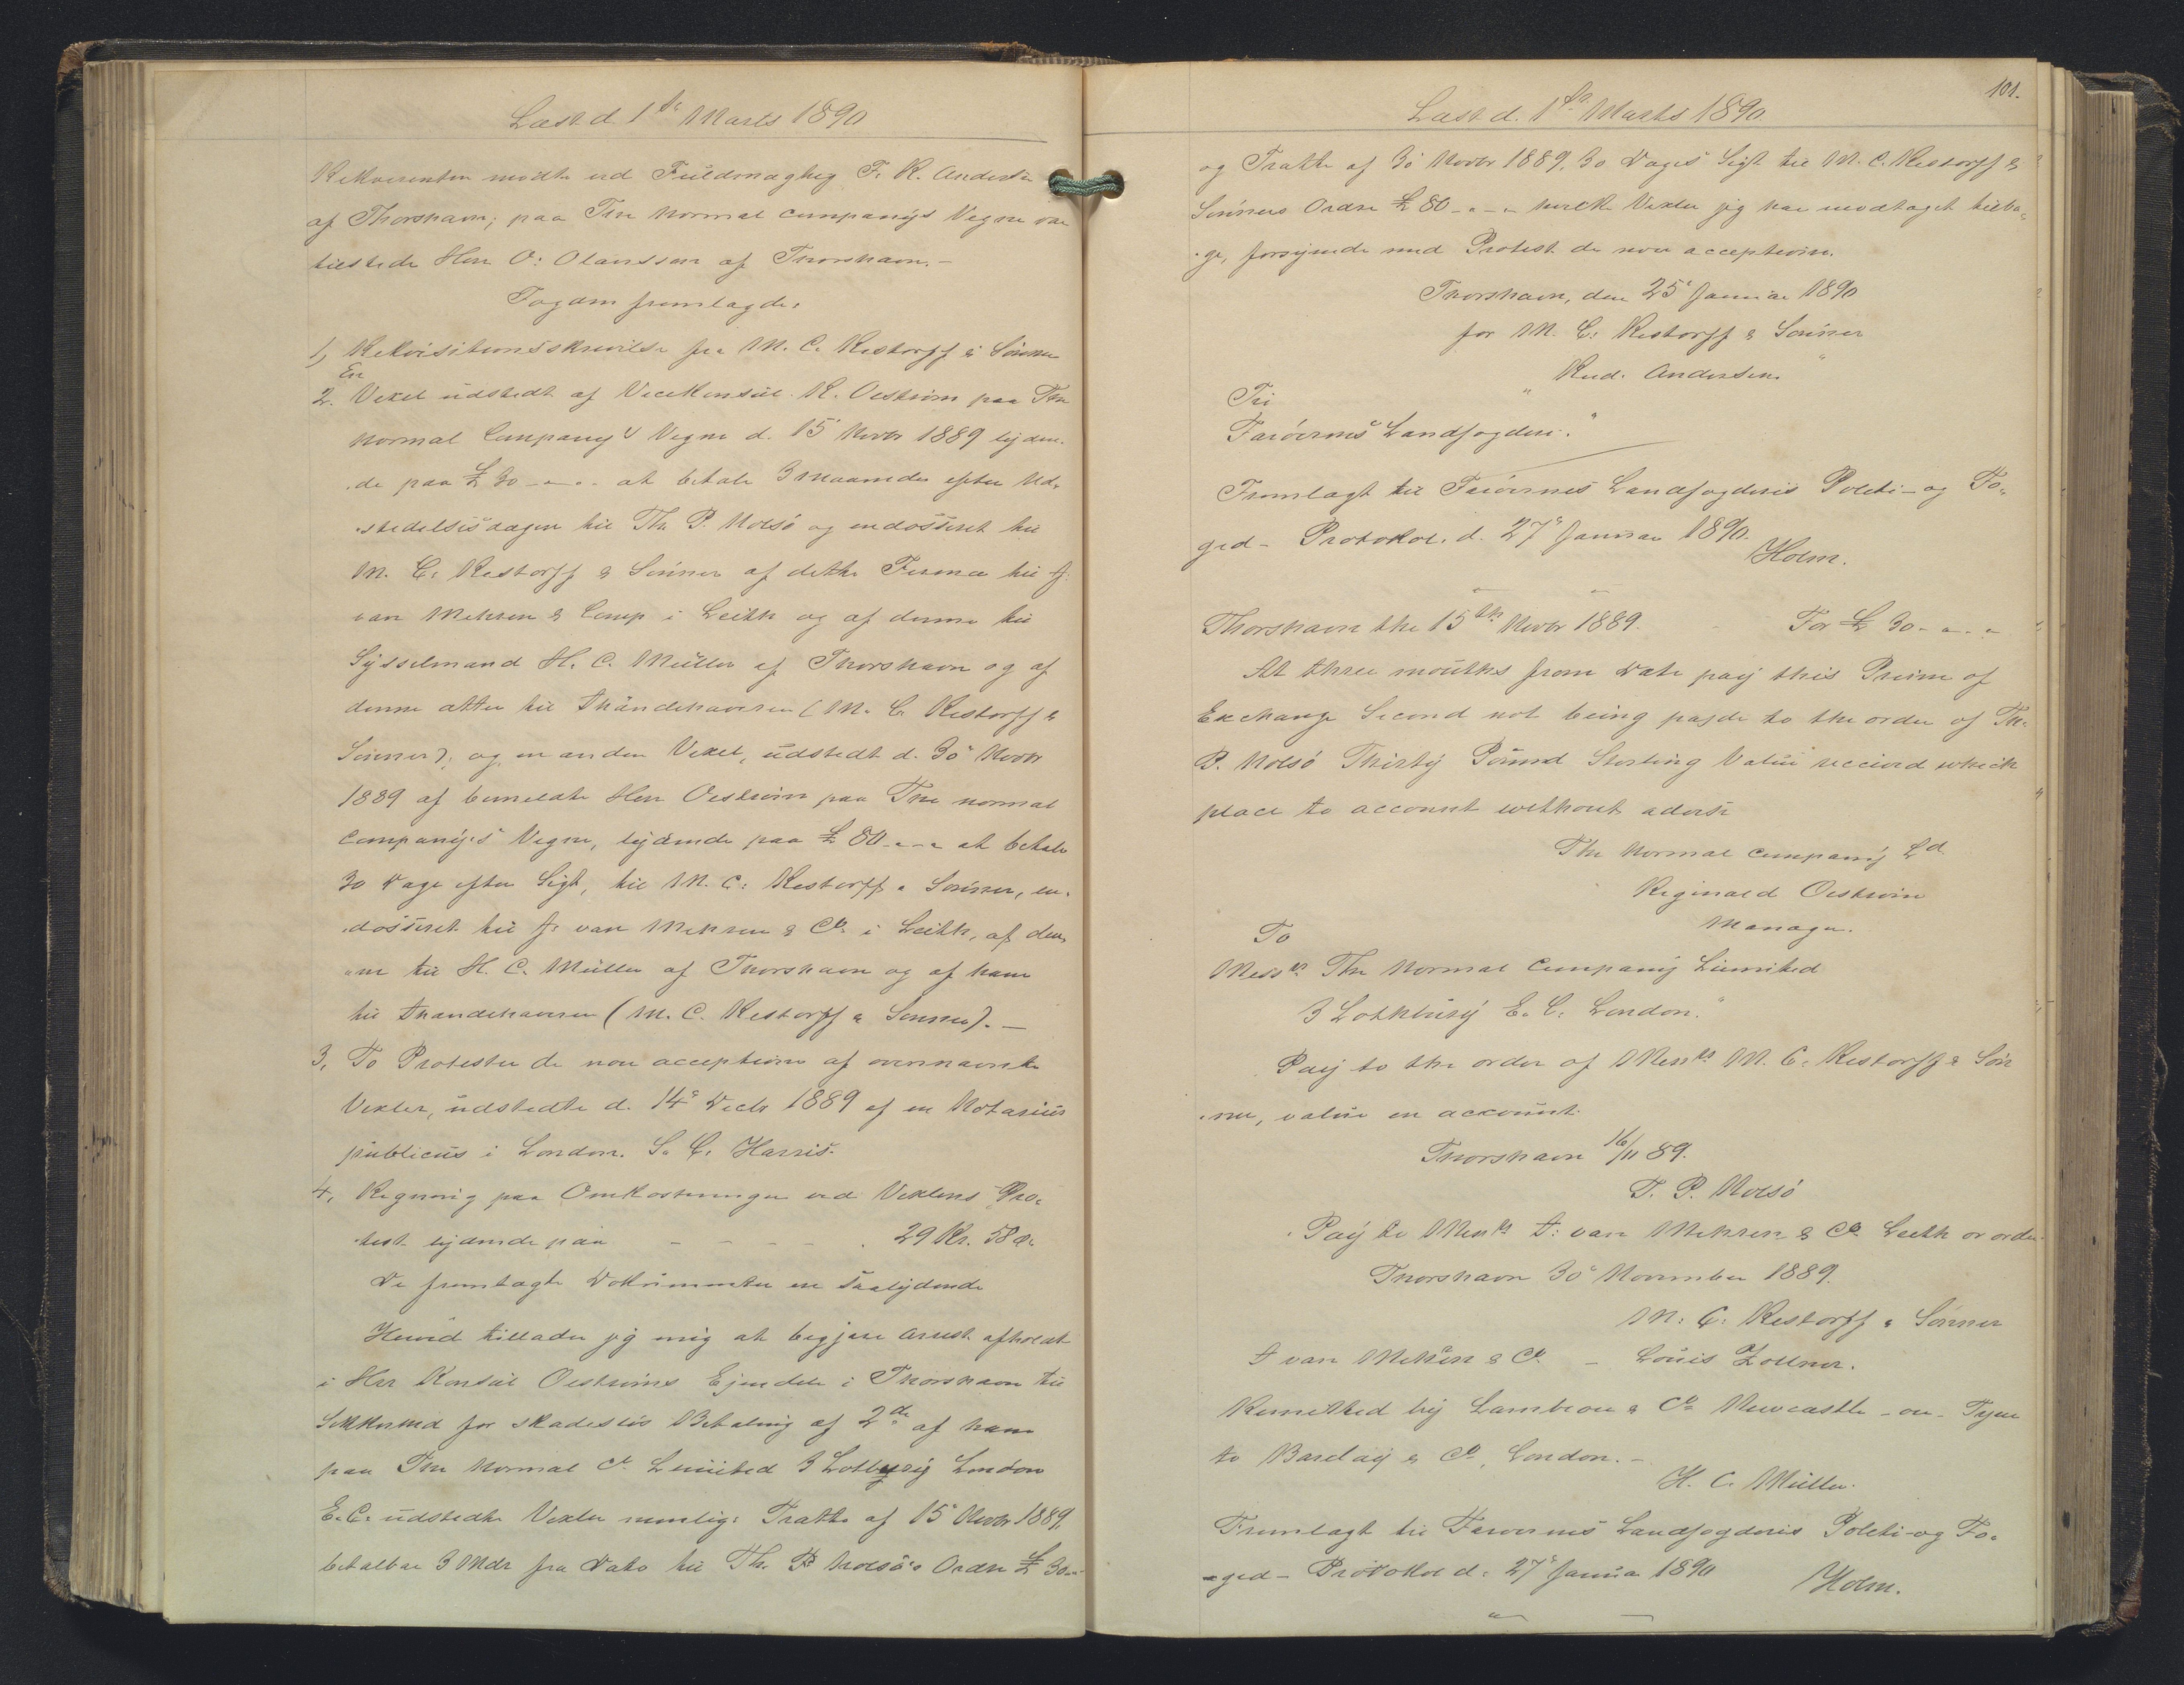 Læst d. 1ste Marts 1890
Rekvirenten mødte ved Fuldmægtig F. R. Andersen
af Thorshavn; paa The normal companys Vegne var
tilstede Herr O: Olaussen af Thorshavn.-
Fogden fremlagde:
1, Rekvisitionsskrivelse fra M. C. Restorff & Sönner
En
2. Vexel udstedt af Vicekonsul R. Oestrein paa The
normal Companys Vegne d. 15' Novbr 1889 lyden-
de paa £ 30 - " - " at betale 3 maaneder efter Ud-
stedelsesdagen til Th. P. Nolsö og endosseret til
M. C. Restorff & Sönner af dette Firma til A.
van Mehren & Comp i Leith og af denne til
Sysselmand H. C. Müller af Thorshavn og af
denne atter til Ihændehaveren (M. C. Restorff &
Sönner), og en anden Vexel, udstedt d. 30' Novbr
1889 af bemeldte Herr Oestrein paa The normal
Company's Vegne, lydende paa £ 80 - " - " at betale
30 Dage efter Sigt, til M. C. Restorff & Sönner, en-
dosseret til A. van Mehren & Co. i Leith, af den-
ne til H. C. Müller af Thorshavn og af ham
til Ihændehaveren (M. C. Restorff & Sönner). -
3, To Protester de non acceptione af ovennævnte
Vexler, udstedte d. 14' Decbr 1889 af en Notarius
publicus i London. S. C. Harris.
4, Regning paa Omkostninger ved Vexlens Pro-
test lydende paa - - - - . 29 Kr. 58 Ø.
De fremlagte Dokumenter ere saalydende
Herved tillader jeg mig at begjære Arrest afholdt
i Herr Konsul Oestreins Ejendele i Thorshavn til
Sikkerhed for skadeslös Betaling af 2de af ham
paa The Normal Co. Limited 3 Lotbury London
E. C. udstedte Vexler nemlig: Tratte af 15' Novbr 1889,
betalbar 3 Mdr fra Dato til Th. P. Nolsö's Ordre £ 30 -
101.
Læst d. 1ste Marts 1890
og Tratte af 30' Novbr 1889, 30 Dages Sigt til M. C. Restorff &
Sönners Ordre £ 80 - " - " hvilke Vexler jeg har modtaget tilba-
ge, forsynede med Protest de non acceptione.
Thorshavn, den 25' Januar 1890
for M. C. Restorff & Sönner
" Rud. Andersen "
Til
Færöernes Landfogderi."
Fremlagt til Færöernes Landfogderis Politi- og Fo-
ged- Protokol. d. 27' Januar 1890.
Holm.
Thorshavn the 15th Novbr 1889. For £ 30 - " - "
At three mouths from Date pay this Prime of
Exchange Second not being payde to the order of Th.
P. Nolsö Thirty Pound Sterling Value received which
place to account without advise
The Normal company Ld
Reginald Oestrein
Manager.
To
Messrs The Normal Company Limited
3 Lothbury E. C. London."
Pay to the order of Messrs M. C. Restorff & Sön
ner, value en account.
Thorshavn 16/11 89.
T. P. Nolsö
Pay to Messrs A. van Mehren & Co. Leith or order
Thorshavn 30' November 1889.
M. C. Restorff & Sönner
A van Mehren & Co. - Louis Zollner.
Remitted by Lambton & Co. Newcastle-on-Tyne
to Barclay & Co, London. -
H. C. Müller.
Fremlagt til Færöernes Landfogderis Politi- og Fo-
ged- Protokol d. 27' Januar 1890
Holm.